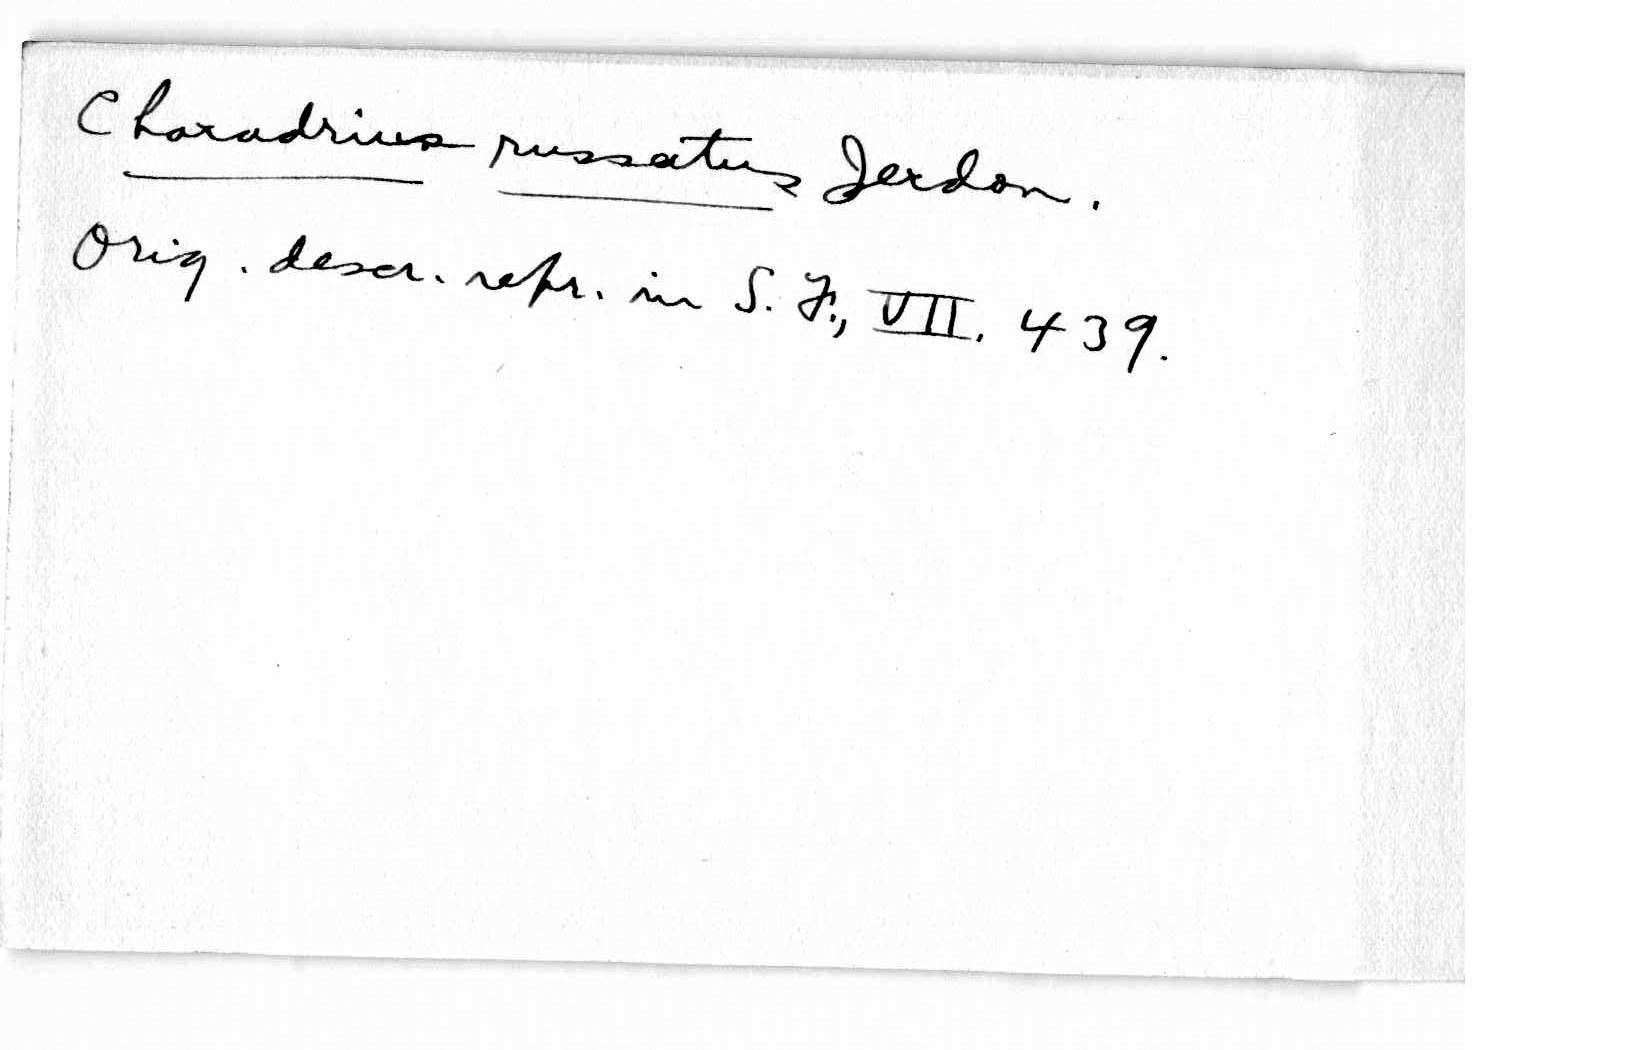 Charadrius russatus Jerdon.
Orig. descr. repr. in S. F., VII. 439.